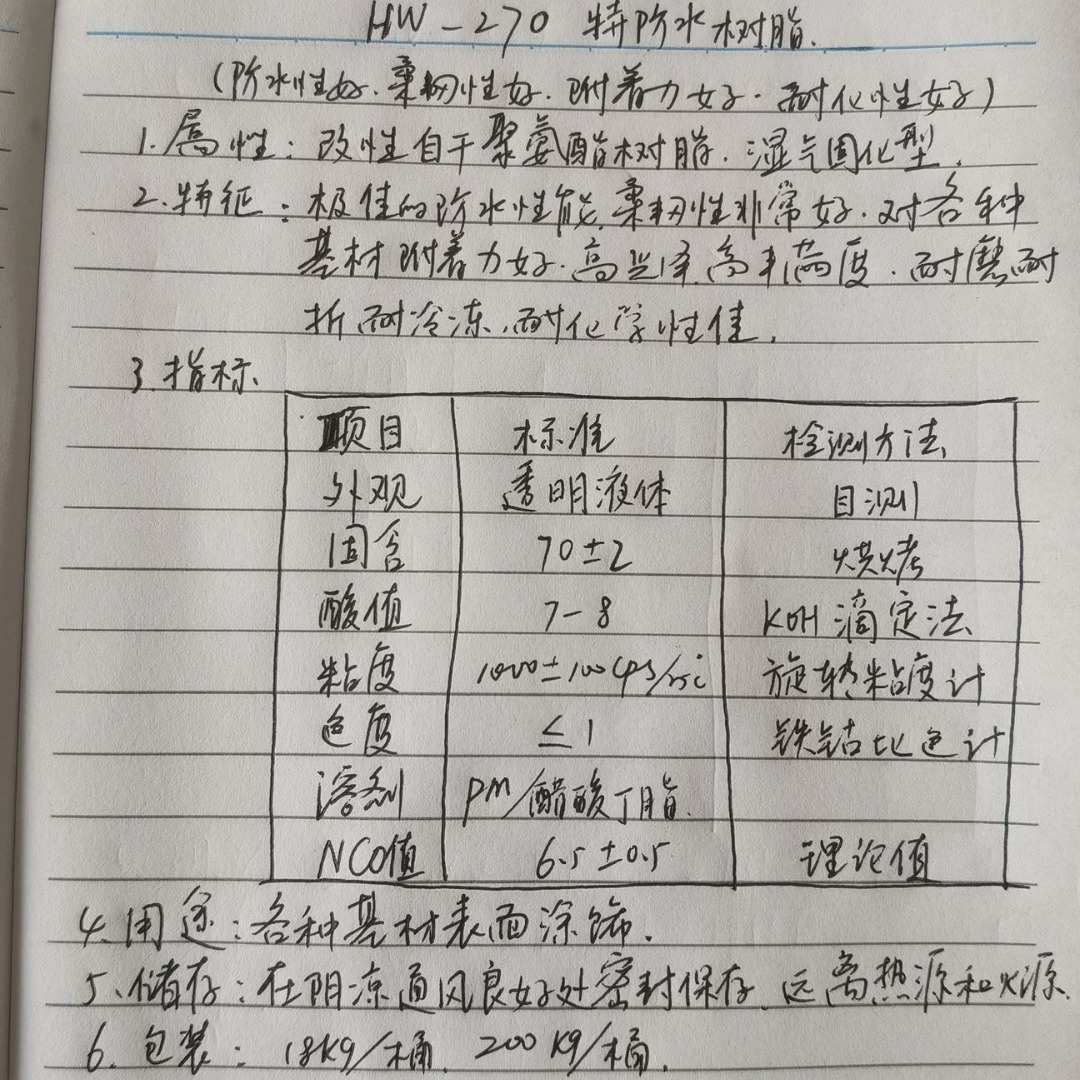 HW-270 特防水树脂.
(防水性好.柔韧性好.附着力好.耐化性好)
1.属性:改性自干聚氨酯树脂.湿气固化型.
2.特征:极佳的防水性能.柔韧性非常好.对各种
基材附着力好.高光泽.高丰满度.耐磨耐
折耐冷冻.耐化学性佳.
3.指标.
项目 标准 检测方法.
外观 透明液体 目测
固含 70±2 烘烤
酸值 7-8 KOH滴定法
粘度 1000±100cps/25℃ 旋转粘度计
色度 ≤1 铁钴比色计
溶剂 PM/醋酸丁脂.
NCO值 6.5±0.5 理论值
4.用途:各种基材表面涂饰.
5.储存:在阴凉通风良好处密封保存.远离热源和火源.
6.包装:18KG/桶. 200KG/桶.